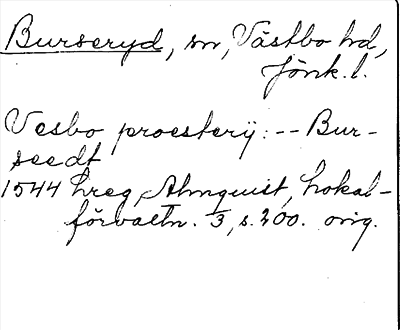 Burseryd, sn, Västbo hd,
Jönk. l.
Vesbo proesterÿ: -- Bur-
seedt
1544 hreg Almquist, Lokal-
förvaltn. 3, s. 200. orig.